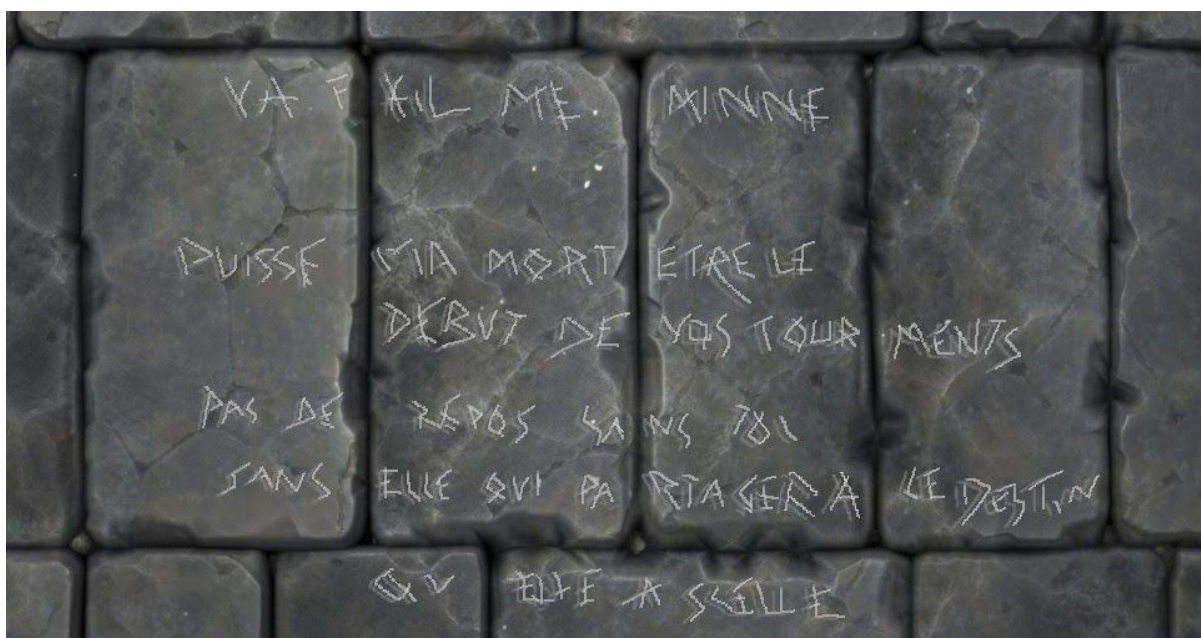 YA F KIL ME MINNE
PUISSE MA MORT ETRE LE
DEBUT DE VOS TOURMENTS
PAS DE REPOS SANS TOI
SANS ELLE QUI PARTAGERA LE DESTIN
QU ELLE A SCELLE